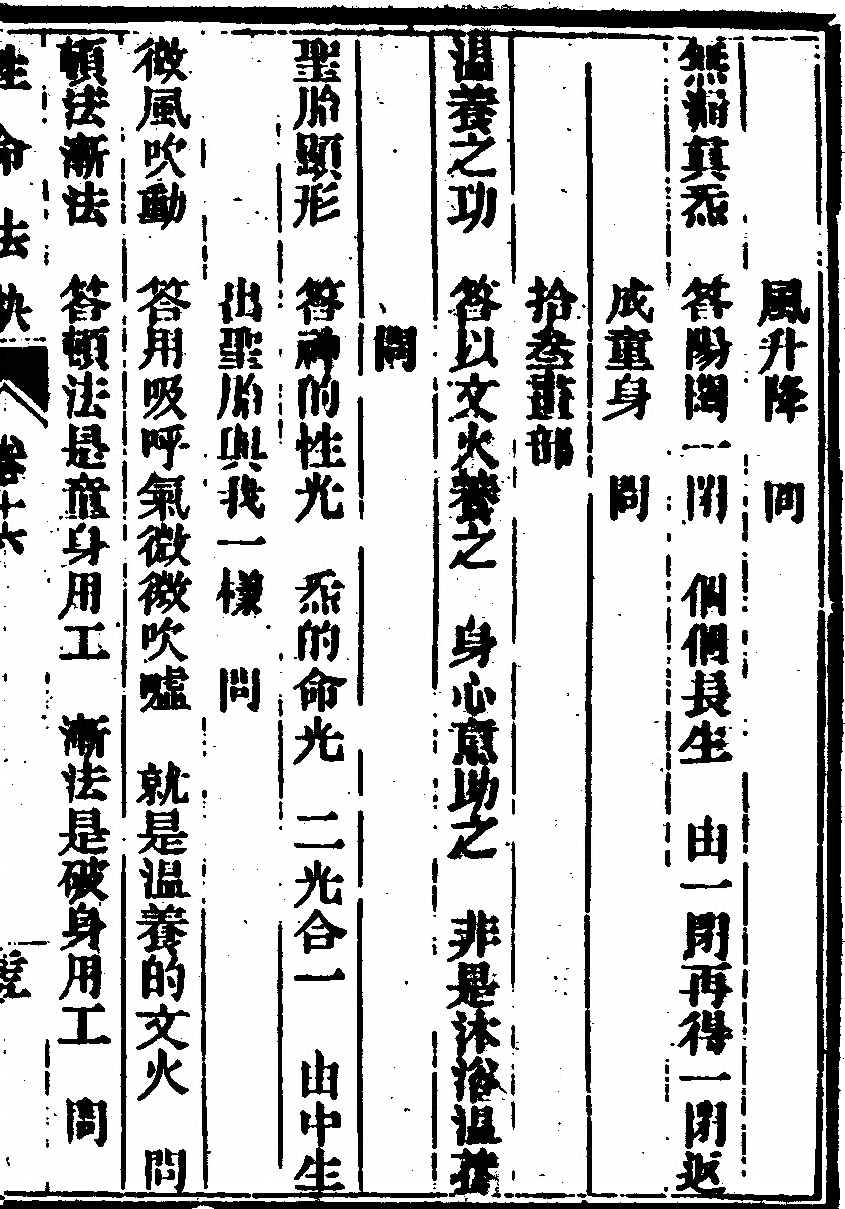 風升降　問
無漏真炁　答陽関一閉　個個長生　由一閉再得一閉返
成童身　問
拾叁畫部
温養之功　答以文火養之　身心意助之　非是沐浴温養
問
聖胎顕形　答神的性光　炁的命光　二光合一　由中生
出聖胎與我一樣　問
微風吹動　答用吸呼氣微微吹噓　就是温養的文火　問
頓法漸法　答頓法是童身用工　漸法是破身用工　問
性命法訣　卷十六